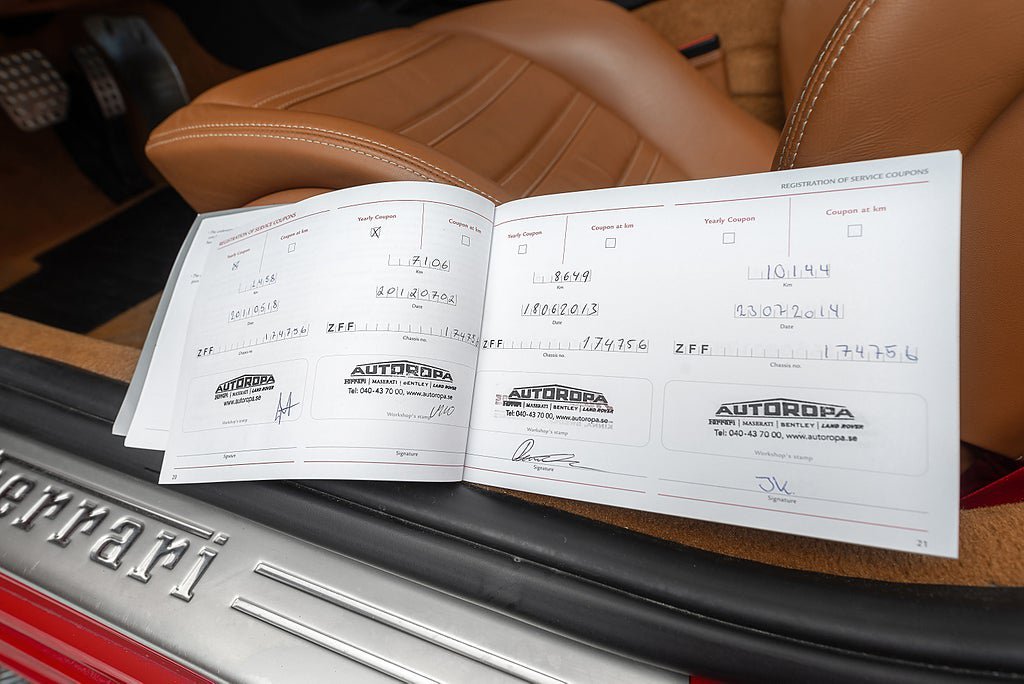 REGISTRATION OF SERVICE COUPONS
Yearly Coupon
Coupon at km
X
1458
Km
20110518
Date
ZFF 174756
Chassis no.
AUTOROPA
FERRARI | MASERATI | BENTLEY | LAND ROVER
www.autoropa.se
Workshop's stamp
Signature
20
Yearly Coupon
Coupon at km
X
7106
Km
20120702
Date
ZFF 174756
Chassis no.
AUTOROPA
FERRARI | MASERATI | BENTLEY | LAND ROVER
Tel: 040-43 70 00, www.autoropa.se
Workshop's stamp
Signature
Yearly Coupon
Coupon at km
8649
Km
18062013
Date
ZFF 174756
Chassis no.
AUTOROPA
FERRARI | MASERATI | BENTLEY | LAND ROVER
Tel: 040-43 70 00, www.autoropa.se
Workshop's stamp
Signature
REGISTRATION OF SERVICE COUPONS
Yearly Coupon
Coupon at km
10144
Km
23072014
Date
ZFF 174756
Chassis no.
AUTOROPA
FERRARI | MASERATI | BENTLEY | LAND ROVER
Tel: 040-43 70 00, www.autoropa.se
Workshop's stamp
JK.
Signature
21
Ferrari